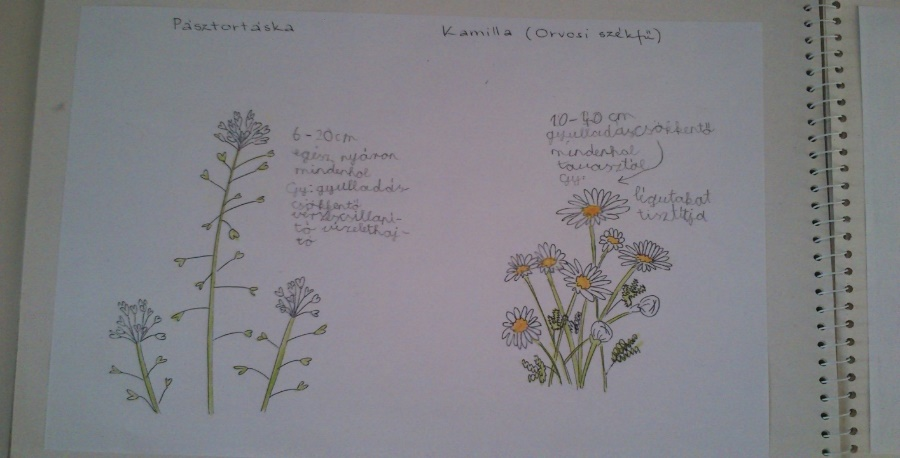 Pásztortáska
6-20cm
egész nyáron
mindenhol
Gy: gyulladás
csökkentő
vérzéscsillapí-
tó vizelethaj-
tó
Kamilla (Orvosi székfű)
10-40 cm
gyulladáscsökkentő
mindenhol
tavasztól
gy:
légutakat
tisztítja